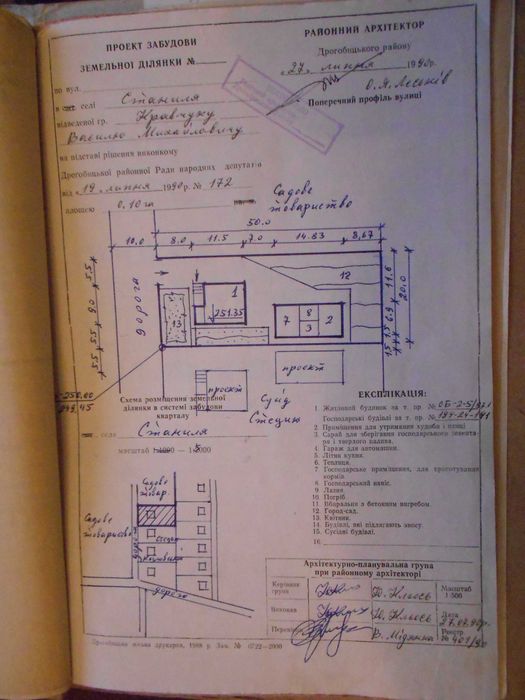 ПРОЕКТ ЗАБУДОВИ
ЗЕМЕЛЬНОЇ ДІЛЯНКИ №
по вул.
в селі Станиля
відведеної гр. Кравчуку
Василю Михайловичу
на підставі рішення виконкому
Дрогобицької районної Ради народних депутатів
від «19» липня 1990 р. № 172
площею 0,10 га
РАЙОННИЙ АРХІТЕКТОР
Дрогобицького району
«27» липня 1990 р.
Поперечний профіль вулиці
Садове
товариство
50.0
10,0 8.0 11.5 7.0 14.83 8,67
5.5 9.0 5.5
дорога
1
251.35
13
12
7 8 3 2
11.6 6.9 1.5
20.0
проєкт
проєкт
250.00
249.45
Схема розміщення земельної
ділянки в системі забудови
кварталу
село Станиля
масштаб 1:5000
Садове
товар.
Садове
товариство
дорога
дорога
ЕКСПЛІКАЦІЯ:
1 Житловий будинок за т. пр. №
Господарські будівлі за т. пр. №
2 Приміщення для утримання худоби і птиці
3 Сарай для зберігання господарського інвентаря і твердого палива.
4 Гараж для автомашин.
5 Літня кухня.
6 Теплиця.
7 Господарське приміщення, для приготування кормів
8 Господарський навіс.
9 Лазня.
10 Погріб.
11 Вбиральня з бетонним вигребом.
12 Город-сад.
13 Квітник.
14 Будівлі, які підлягають зносу.
15 Сусідні будівлі.
16
Архітектурно-планувальна група
при районному архітекторі
Керівник
група
Ю. Клюсь
Масштаб
1:500
Виконав
Ю. Клюсь
Дата
27.07.90р.
Реєстр
№ 401/90
Дрогобицька міська друкарня, 1989 р. Зам. № 0722—2000